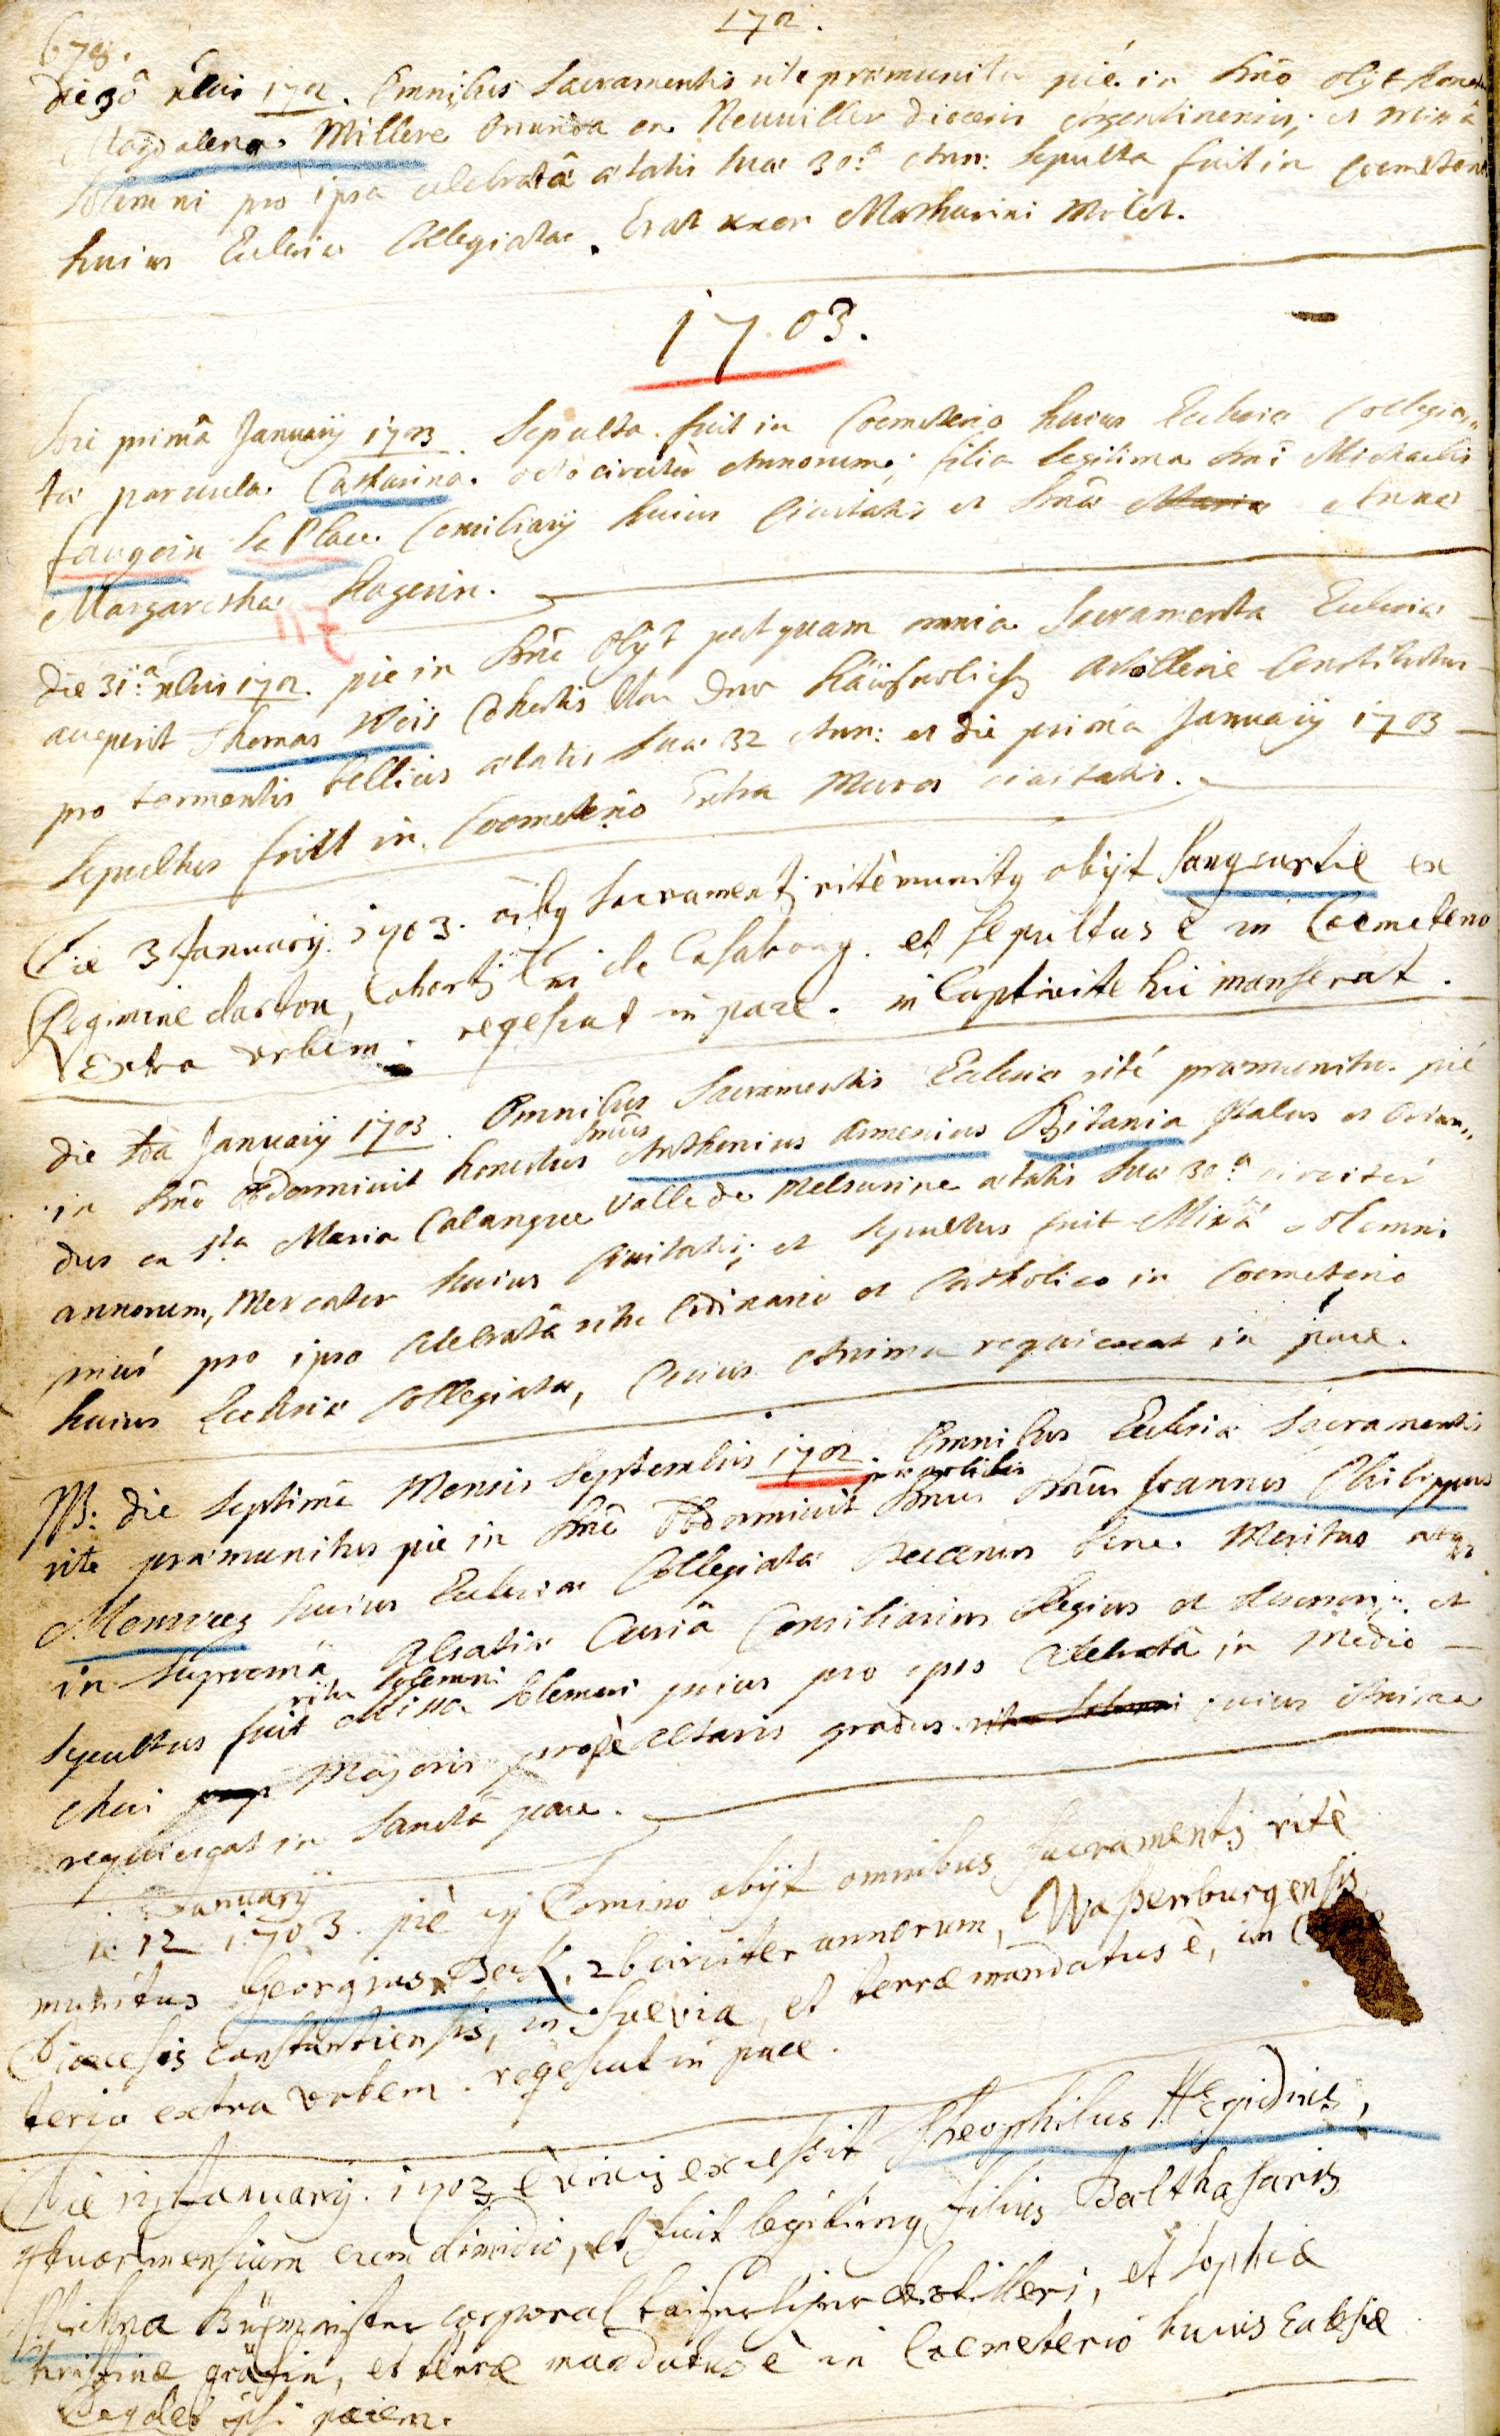 678.
1702.
Die 30 Xbris 1702. Omnibus Sacramentis rite præmunita pié in Dnõ obijt honesta
Magdalena Millere Oriunda ex Neuviller Diœcesis Argentinensis, et Missâ
Solemni pro ipsa celebratâ ætatis suæ 30.ª Ann: Sepulta fuit in Cœmeterio
huius Ecclesiæ Collegiatæ. Erat uxor Mathurini Molet.
1703.
Die primâ Januarij 1703 Sepulta fuit in Cœmeterio huius Ecclesiæ Collegia,,
tæ parvula Catharina octo circiter Annorum, filia legitima Dni Michaelis
faugoin la Place Consiliarij huius Civitatis et Dnæ Maria Annæ
Margarethæ Hagerin.
117
Die 31.ª Xbris 1702. pie in Dnõ Obijt postquam omnia Sacramenta Ecclesiæ
acceperit Thomas Weis Cohortis Artollerie Constitutus
pro tormentis bellicis ætatis suæ 32 Ann: et die prima Januarij 1703
Sepultus fuit in Cœmeterio Extra Muros civitatis.
Die 3 January. 1703. oibg Sacramentis ritè munitg obijt Sangcartie ex
Regimine darton, Cohortis Dni de Casabong. et Sepultus è in Cœmeterio
Extra urbem. reqescat in pace. in Captivite hic manserat.
die Januarij 1703. Omnibus Sacramentis Ecclesiæ rité præmunitus pié
in Dnõ Obdormivit honestus Dnus Anthonius Armenius Bitania Italus et Oriun,,
dus ex Sta Maria Calangue Valle de Melsurine ætatis suæ 30.ª circiter
annorum, Mercator huius Civitatis, et Sepultus fuit Missâ Solemni
prius pro ipso Celebratâ ritu Ordinario et Catholico in Cœmeterio
huius Ecclesiæ Collegiatæ, Cuius Anima requiescat in pace.
NB: die Septimâ Mensis Septembris 1702. Omnibus Ecclesiæ Sacramentis
rite præmunitus pie in Dnõ Obdormivit Dnus Dnus Joannes Philippus
Mouwag huius Ecclesiæ Collegiatæ Decanus bene Meritus atqz
in Supremâ Alsatiæ Curiâ Consiliarius Regius et et
Sepultus fuit ritu Solemni Missa Solemni prius pro ipso Celebratâ in Medio
Chori Majoris propè altaris gradus cuius Anima
requiescat in Sanctâ pace.
Die 12 January 1703. piè in Domino obijt omnibus Sacramentis ritè
munitus Georgius Beck, 26 circiter annorum, Waßerburgensis
Diœcesis Constantiensis, in Suevia, et terræ mandatus è, in Cœme
terio extra urbem. reqescat in pace.
Die 12 January. 1703 è vivis excessit Theophilus Aegidius,
4tuor mensium cum dimidio, et fuit legitimg filius Balthasaris
Bügmeister corporal kaiserlicher Artilleri, et Sophiæ
Christinæ gräsin, et terræ mandatus è in Cœmeterio huius Eclesiæ
Deg det ipsi pacem.